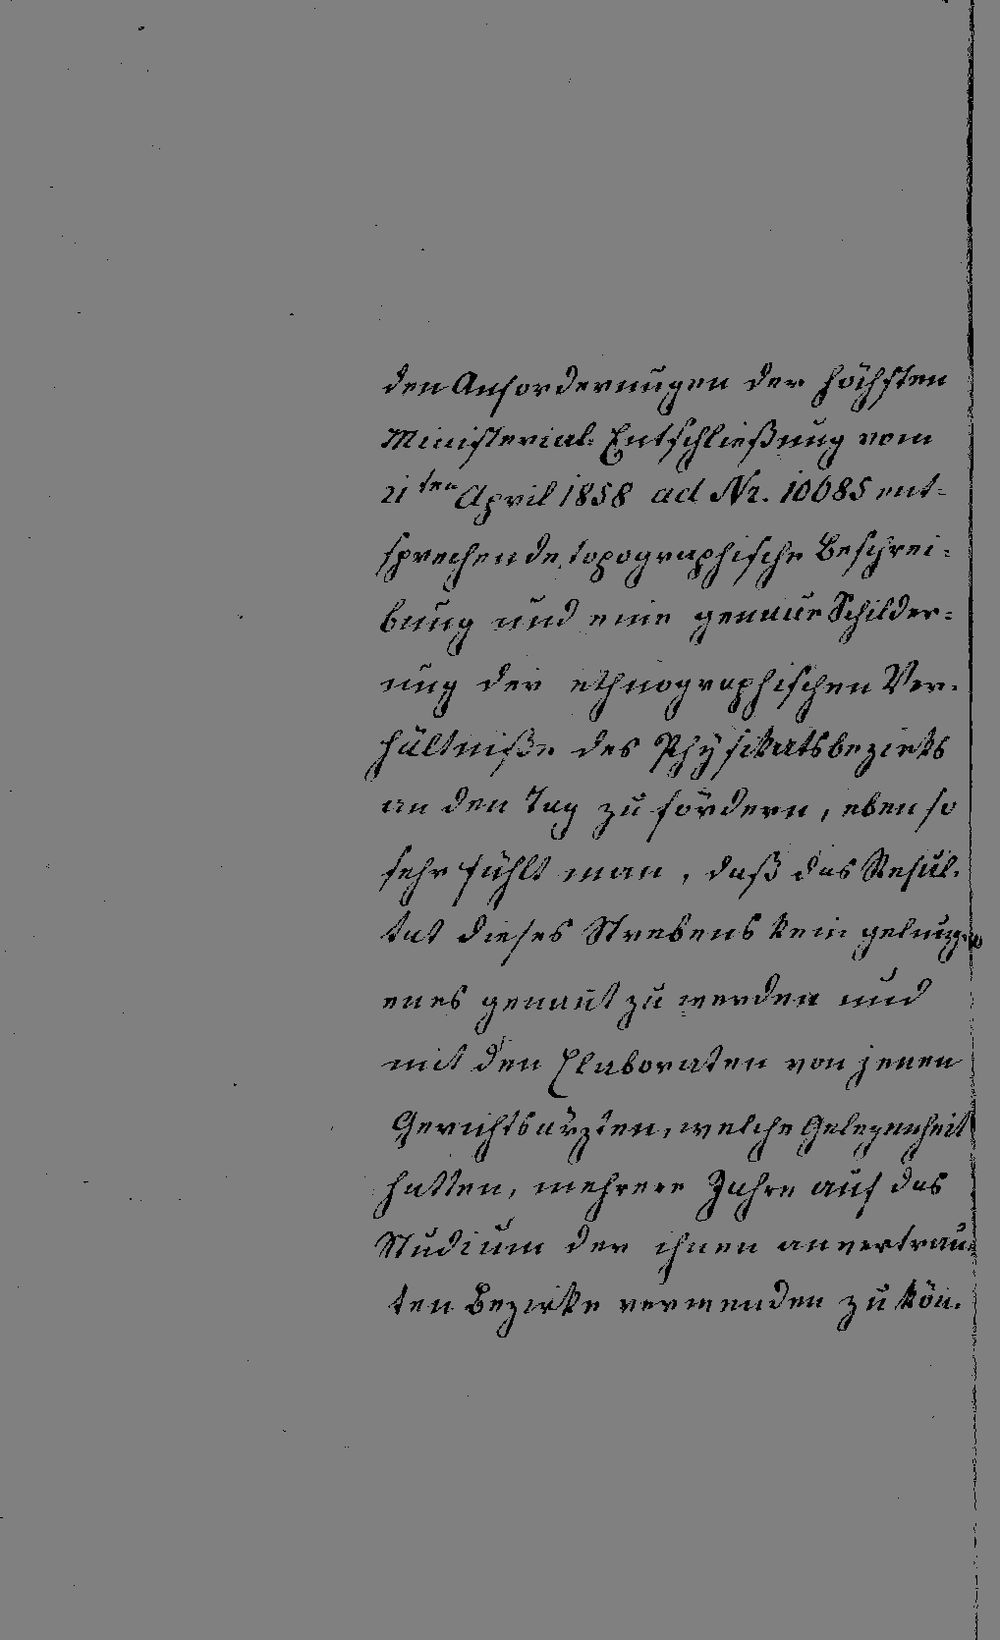 den Anforderungen der höchsten
Ministerial-Entschließung vom
21ten April 1858 ad Nr. 10085 ent-
sprechende, topographische Beschrei-
bung und eine genaue Schilder-
ung der ethnographischen Ver-
hältniße des Physikatsbezirks
an den Tag zu fördern, eben so
sehr fühlt man, daß das Resul-
tat dieses Strebens kein gelung-
enes genannt zu werden und
mit den Elaboraten von jenen
Gerichtsärzten, welche Gelegenheit
hatten, mehrere Jahre auf das
Studium der ihnen anvertrau-
ten Bezirke verwenden zu kön-